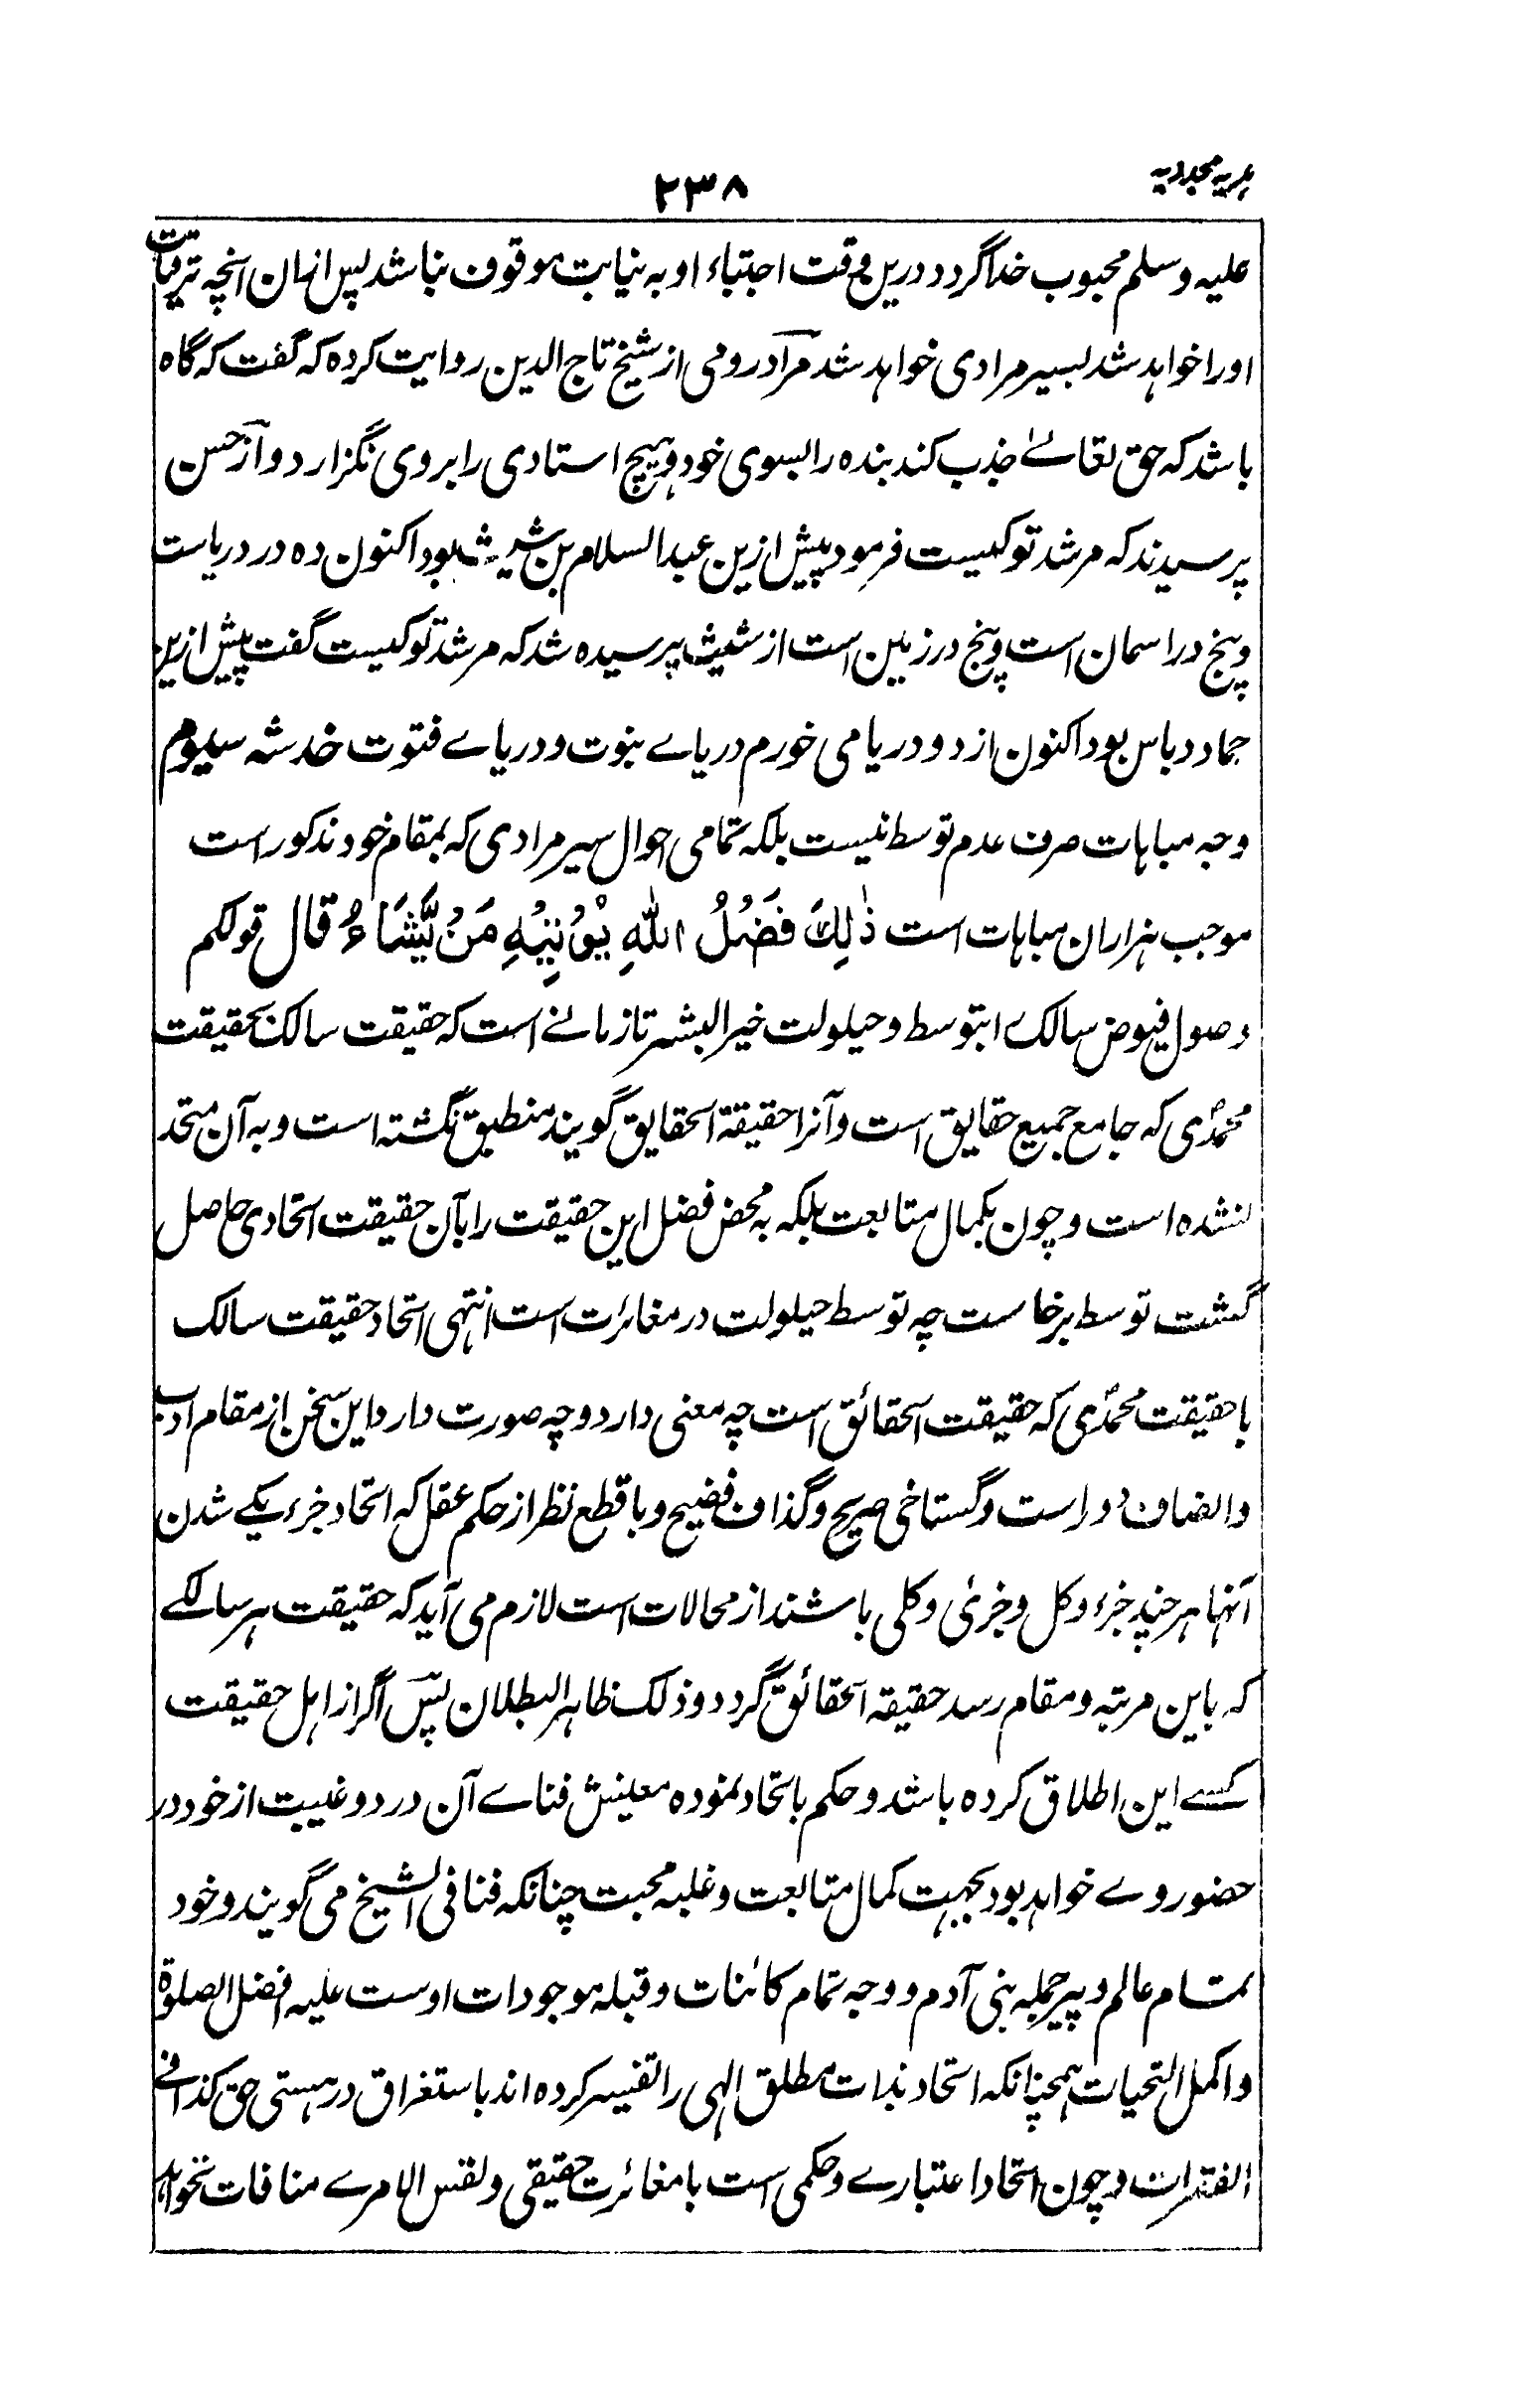 ہدیہ مجددیہ
۲۳۸
علیہ وسلم محبوب خدا گردد درین وقت اجتباء او بہ نیابت موقوف نباشد پس ازان آنچہ ترقیات
او را خواہد شد بسیر مرادی خواہد شد مرآد رومی از شیخ تاج الدین روایت کردہ کہ گفت کہ گاہ
باشد کہ حق تعالےٰ جذب کند بندہ را بسوی خود و ہیچ استادی را بروی نگزارد و از حسن
پرسیدند کہ مرشد تو کیست فرمود پیش ازین عبد السلام بن شیش بود اکنون دہ در دریاست
و پنج در اسمان است و پنج در زمین است از شیش پرسیدہ شد کہ مرشد تو کیست گفت پیش ازین
حماد دباس بود اکنون از دو دریا می خورم دریاے نبوت و دریاے فتوت خدشہ سیوم
وجہ مباہات صرف عدم توسط نیست بلکہ تمامی احوال سیر مرادی کہ بمقام خود مذکور است
موجب ہزاران مباہات است ذٰلِكَ فَضْلُ اللّٰهِ يُؤْتِيْهِ مَنْ يَّشَاءُ قال قولکم
وصول فیوض سالک را بتوسط و حیلولت خیر البشر تا زمانے است کہ حقیقت سالک بحقیقت
محمدؐی کہ جامع جمیع حقایق است و آنرا حقیقۃ الحقایق گویند منطبق نگشتہ است و بہ آن متحد
نشدہ است و چون بکمال متابعت بلکہ بہ محض فضل این حقیقت را بآن حقیقت اتحادی حاصل
گشت توسط برخاست چہ توسط حیلولت در مغائرت است انتہی اتحاد حقیقت سالک
با حقیقت محمدؐی کہ حقیقت الحقائق است چہ معنی دارد و چہ صورت دارد این سخن از مقام ادب
و انصاف دور است و گستاخی صریح و گذاف فضیح و با قطع نظر از حکم عقل کہ اتحاد جزء یکے شدن
آنہا ہر چند جزء و کل و جزئ و کلی باشند از محالات است لازم می آید کہ حقیقت ہر سالکے
کہ باین مرتبہ و مقام رسد حقیقہ الحقائق گردد و ذلک ظاہر البطلان پس اگر از اہل حقیقت
کسے این اطلاق کردہ باشد و حکم باتحاد نمودہ معنیش فناے آن در دو غیبت از خود در
حضور وے خواہد بود بجہت کمال متابعت و غلبہ محبت چنانکہ فنا فی الشیخ می گویند و خود
تمام عالم و پیر جملہ بنی آدم و وجہ تمام کائنات و قبلہ موجودات اوست علیہ افضل الصلوۃ
و اکمل التحیات ہمچنانکہ اتحاد بذات مطلق الہی را تفسیر کردہ اند باستغراق در ہستی حق کذا فے
الفقرات و چون اتحاد اعتبارے و حکمی است با مغائرت حقیقی و نفس الامرے منافات نخواہد